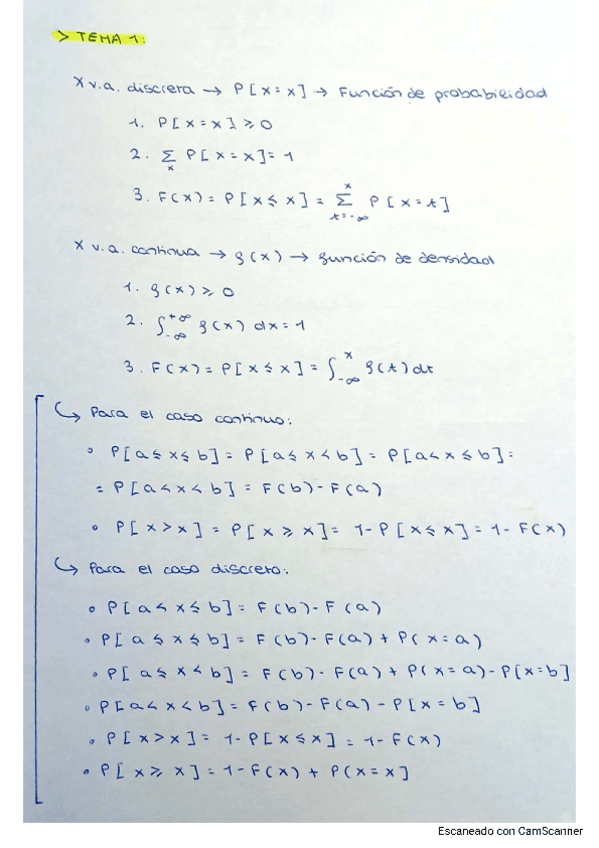 > TEMA 1:
X v.a. discreta → P[X=x] → Función de probabilidad
1. P[X=x] ≥ 0
2. Σ_x P[X=x] = 1
3. F(x) = P[X≤x] = Σ_{t=-∞}^{x} P[X=t]
X v.a. continua → f(x) → función de densidad
1. f(x) ≥ 0
2. ∫_{-∞}^{+∞} f(x) dx = 1
3. F(x) = P[X≤x] = ∫_{-∞}^{x} f(t)dt
↪ Para el caso continuo:
• P[a≤X≤b] = P[a≤X<b] = P[a<X≤b] =
= P[a<X<b] = F(b) - F(a)
• P[X>x] = P[X≥x] = 1-P[X≤x] = 1-F(x)
↪ Para el caso discreto:
• P[a<X≤b] = F(b) - F(a)
• P[a≤X≤b] = F(b) - F(a) + P(X=a)
• P[a≤X<b] = F(b) - F(a) + P(X=a) - P[X=b]
• P[a<X<b] = F(b) - F(a) - P[X=b]
• P[X>x] = 1-P[X≤x] = 1-F(x)
• P[X≥x] = 1-F(x) + P(X=x]
Escaneado con CamScanner